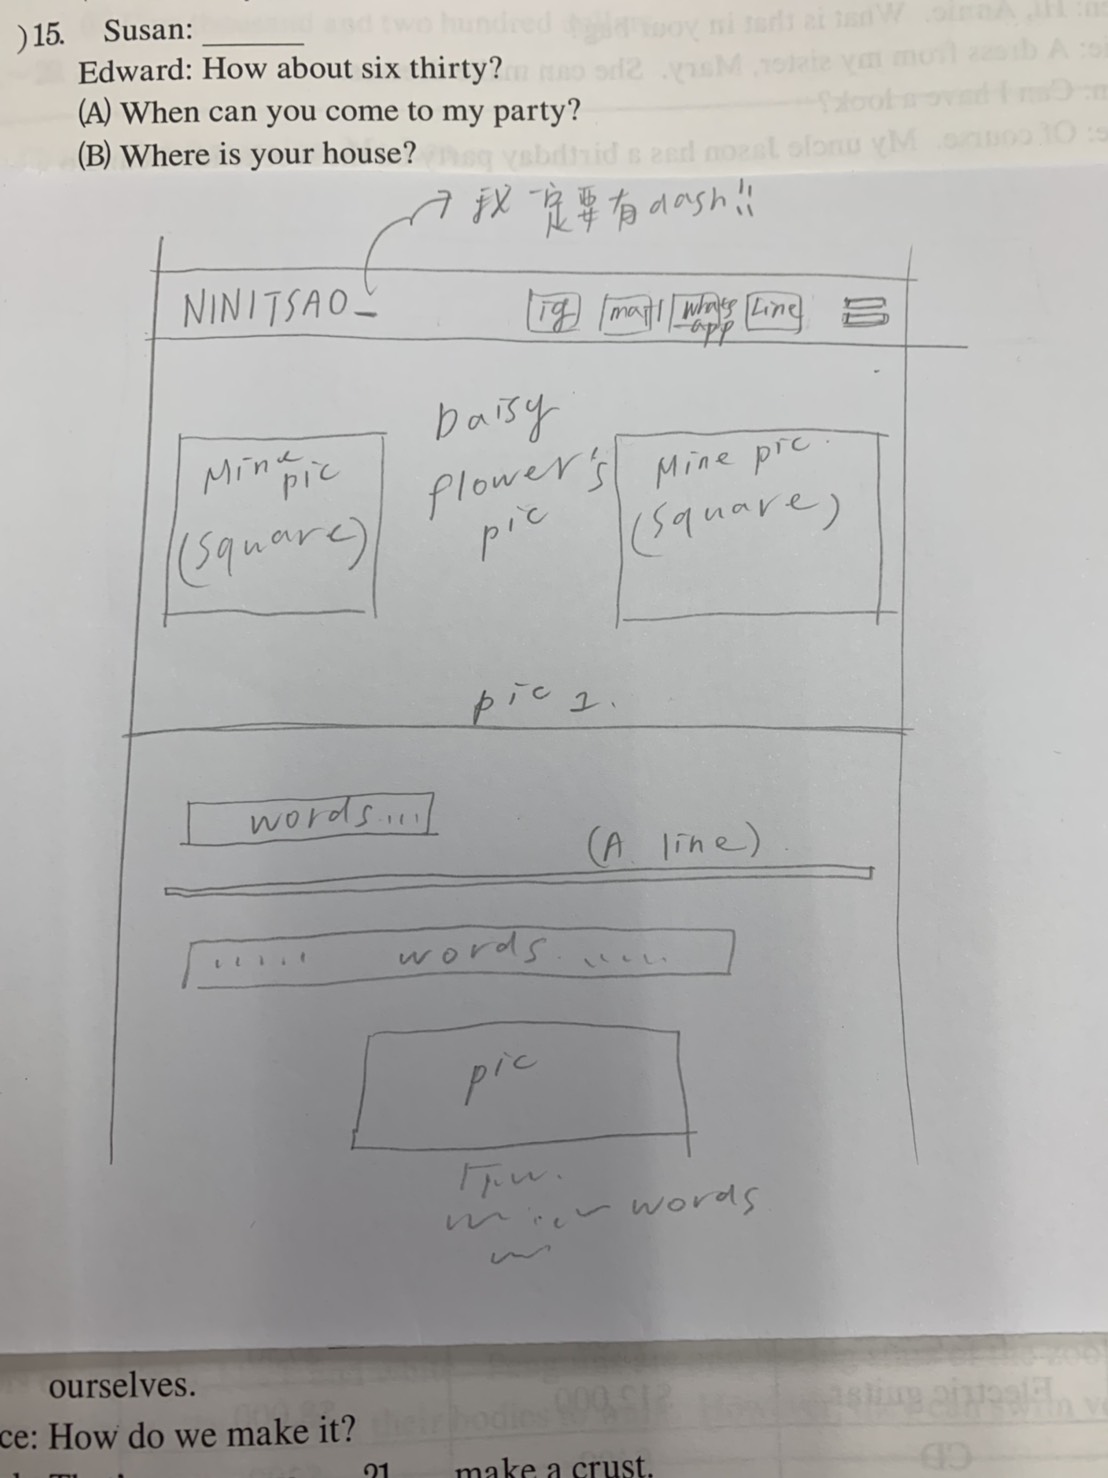 )15. Susan: ______
Edward: How about six thirty?
(A) When can you come to my party?
(B) Where is your house?
我一定要有dash!!
NINITSAO_
ig mail whats app Line
Daisy flower's pic
Mine pic (square)
Mine pic (square)
pic 1.
words...
(A line)
..... words......
pic
words
ourselves.
ce: How do we make it?
21 make a crust.